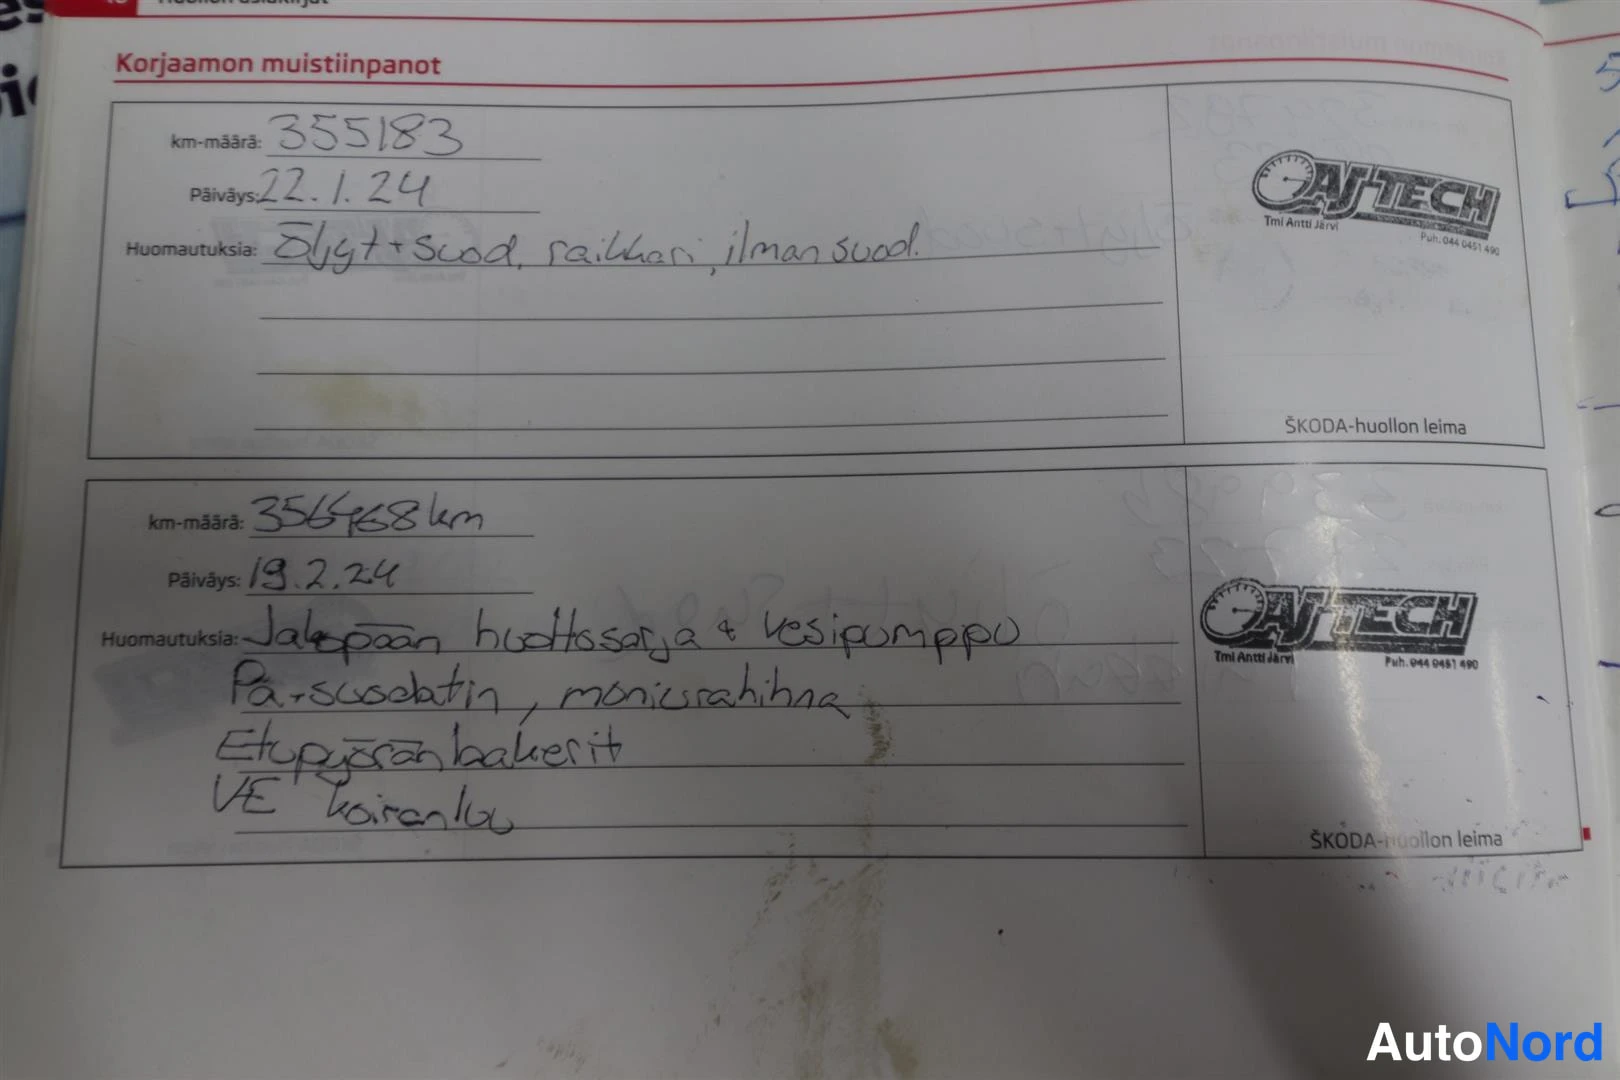 Huollon asiakirjat
Korjaamon muistiinpanot
km-määrä: 355183
Päiväys: 22.1.24
Huomautuksia: Öljyt + suod, raikkari, ilmansuod.
AJ TECH
Tmi Antti Järvi
Puh. 044 0451 490
ŠKODA-huollon leima
km-määrä: 356468 km
Päiväys: 19.2.24
Huomautuksia: Jakopään huoltosarja + vesipumppu
Pa-suodatin, moniurahihna
Etupyöränlaakerit
VE koiranluu
AJ TECH
Tmi Antti Järvi
Puh. 044 0451 490
ŠKODA-huollon leima
AutoNord